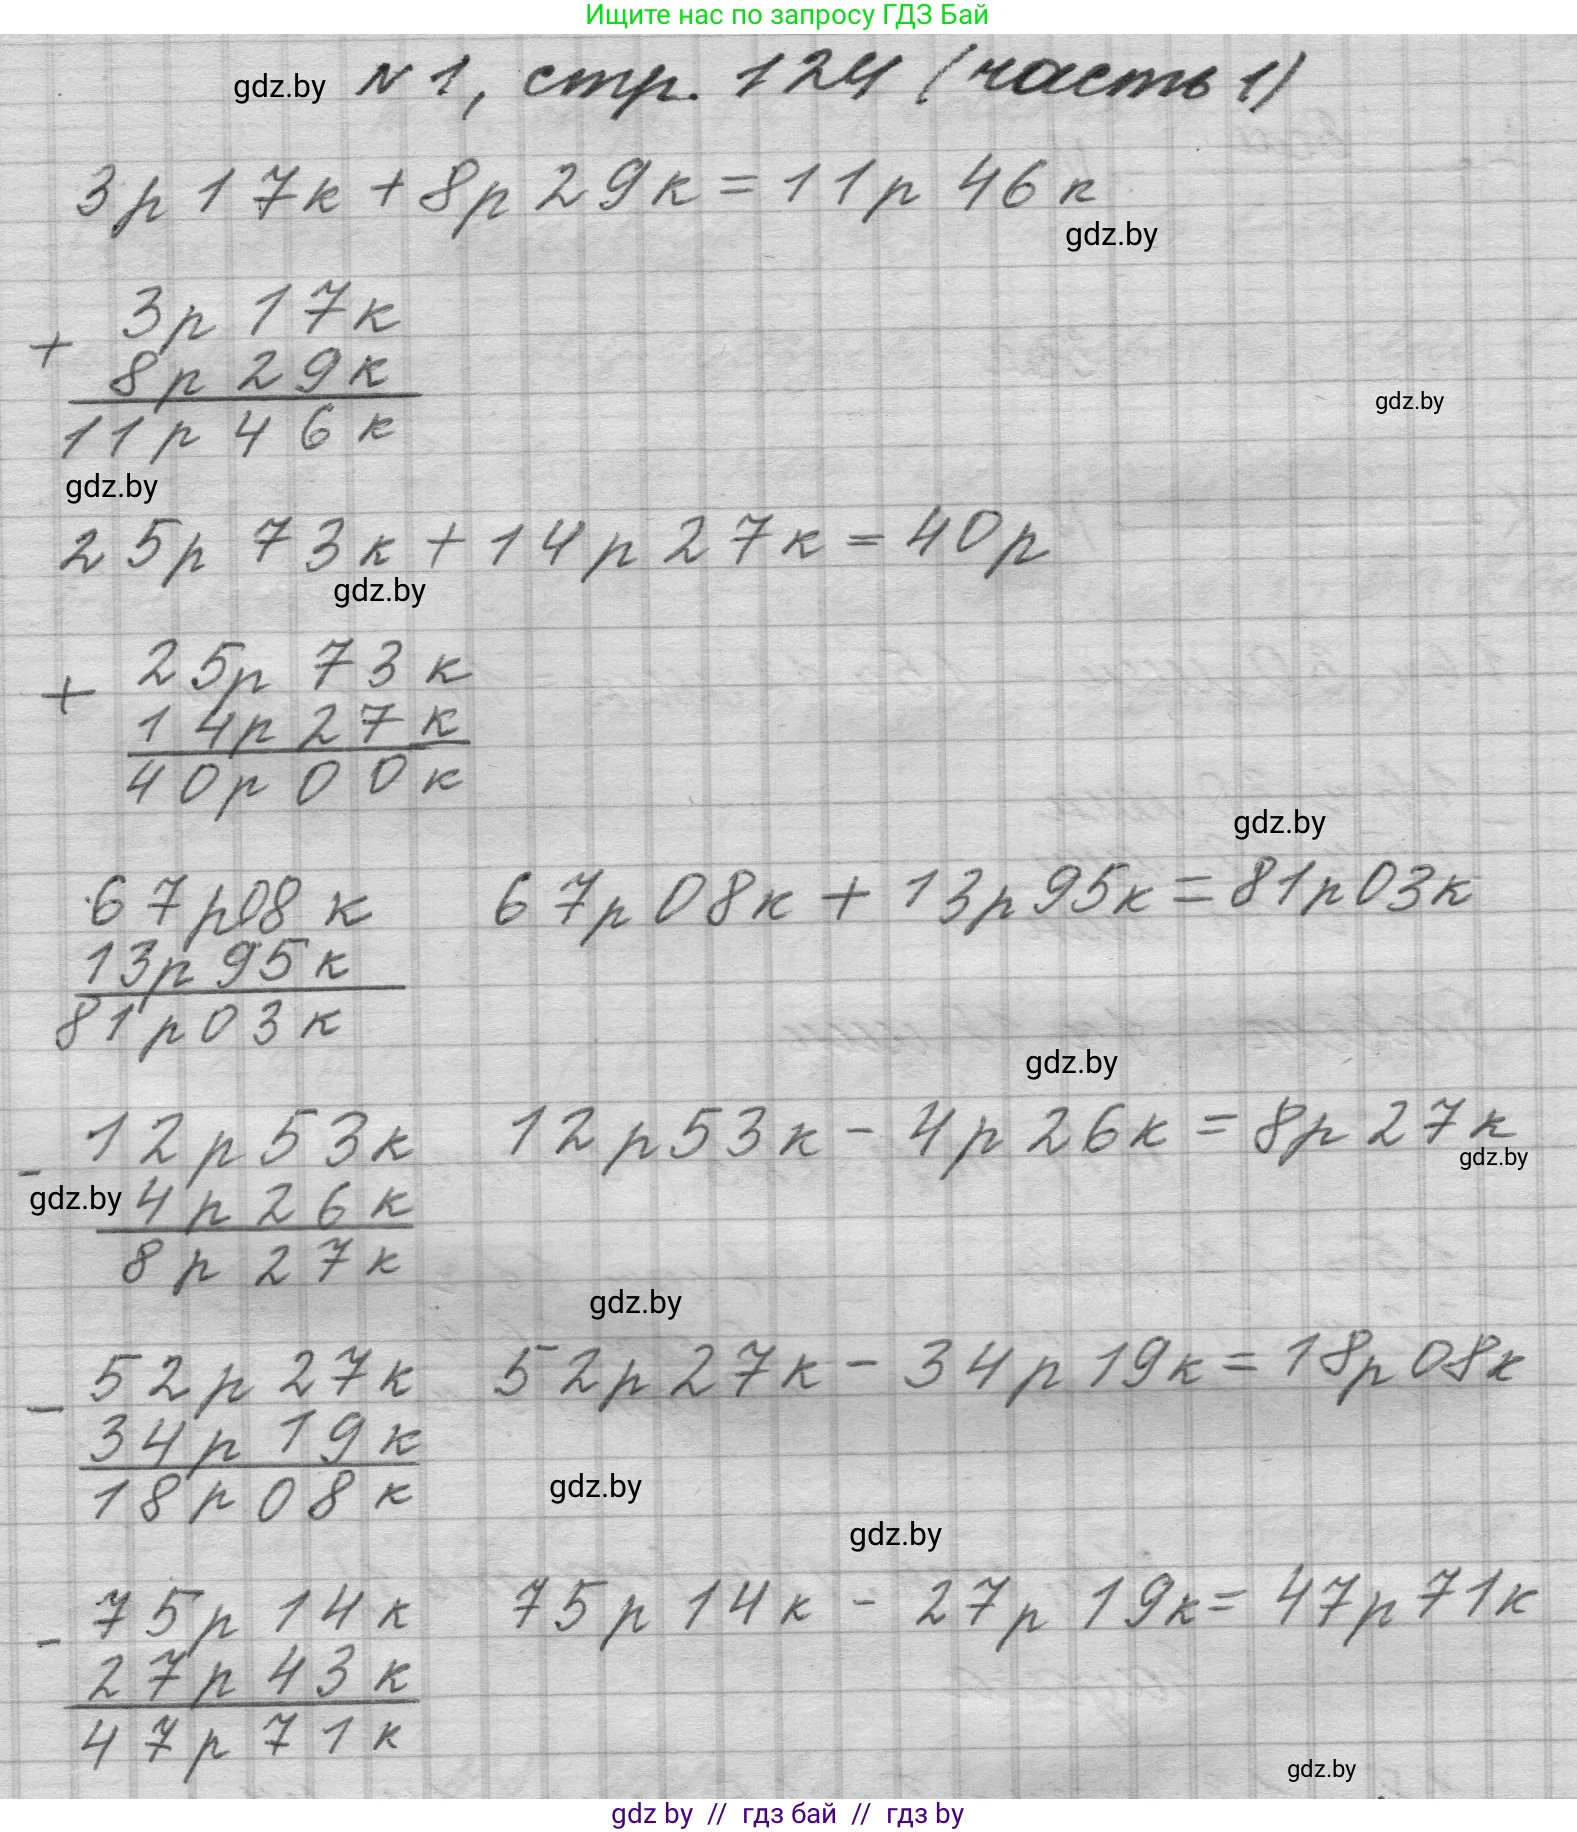 Ищите нас по запросу ГДЗ Бай
gdz.by № 1, стр. 124 (часть 1)
3р 17к + 8р 29к = 11р 46к
gdz.by
3р 17к
+
8р 29к
gdz.by
11р 46к
gdz.by
25р 73к + 14р 27к = 40р
gdz.by
25р 73к
+
14р 27к
40р 00к
gdz.by
67р08к 67р 08к + 13р 95к = 81р03к
13р 95к
81р03к
gdz.by
12р 53к 12р 53к - 4р 26к = 8р 27к
-
gdz.by
gdz.by 4р 26к
8р 27к
gdz.by
52р 27к 52р 27к - 34р 19к = 18р 08к
-
34р 19к
18р 08к
gdz.by
gdz.by
75р 14к 75р 14к - 27р 19к = 47р 71к
-
27р 43к
47р 71к
gdz.by
gdz by // гдз бай // гдз by